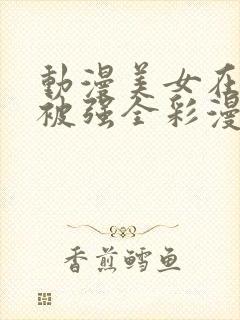 動漫美女在
被强全彩漫
香煎鳕鱼